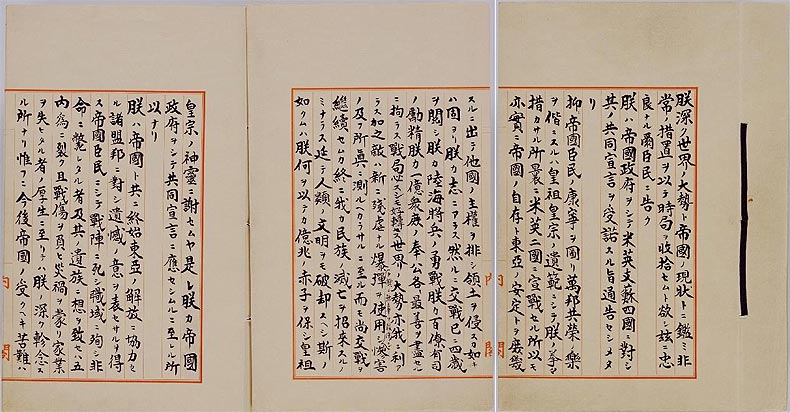 朕深ク世界ノ大勢ト帝國ノ現状トニ鑑ミ非
常ノ措置ヲ以テ時局ヲ收拾セムト欲シ茲ニ忠
良ナル爾臣民ニ告ク
朕ハ帝國政府ヲシテ米英支蘇四國ニ對シ
其ノ共同宣言ヲ受諾スル旨通告セシメタ
リ
抑帝國臣民ノ康寧ヲ圖リ萬邦共榮ノ樂
ヲ偕ニスルハ皇祖皇宗ノ遺範ニシテ朕ノ拳々
措カサル所曩ニ米英二國ニ宣戰セル所以モ
亦實ニ帝國ノ自存ト東亞ノ安定トヲ庶幾
スルニ出テ他國ノ主權ヲ排シ領土ヲ侵スカ如キ
ハ固ヨリ朕カ志ニアラス然ルニ交戰已ニ四歳
ヲ閲シ朕カ陸海將兵ノ勇戰朕カ百僚有司
ノ勵精朕カ一億衆庶ノ奉公各最善ヲ盡セル
ニ拘ラス戰局必スシモ好轉セス世界ノ大勢亦我ニ利ア
ラス加之敵ハ新ニ殘虐ナル爆彈ヲ使用シ慘害
ノ及フ所眞ニ測ルヘカラサルニ至ル而モ尚交戰ヲ
繼續セムカ終ニ我カ民族ノ滅亡ヲ招來スルノ
ミナラス延テ人類ノ文明ヲモ破却スヘシ斯ノ
如クムハ朕何ヲ以テカ億兆ノ赤子ヲ保シ皇祖
皇宗ノ神靈ニ謝セムヤ是レ朕カ帝國
政府ヲシテ共同宣言ニ應セシムルニ至レル所
以ナリ
朕ハ帝國ト共ニ終始東亞ノ解放ニ協力セ
ル諸盟邦ニ對シ遺憾ノ意ヲ表セサルヲ得
ス帝國臣民ニシテ戰陣ニ死シ職域ニ殉シ非
命ニ斃レタル者及其ノ遺族ニ想ヲ致セハ五
内爲ニ裂ク且戰傷ヲ負ヒ災禍ヲ蒙リ家業
ヲ失ヒタル者ノ厚生ニ至リテハ朕ノ深ク軫念ス
ル所ナリ惟フニ今後帝國ノ受クヘキ苦難ハ
内閣